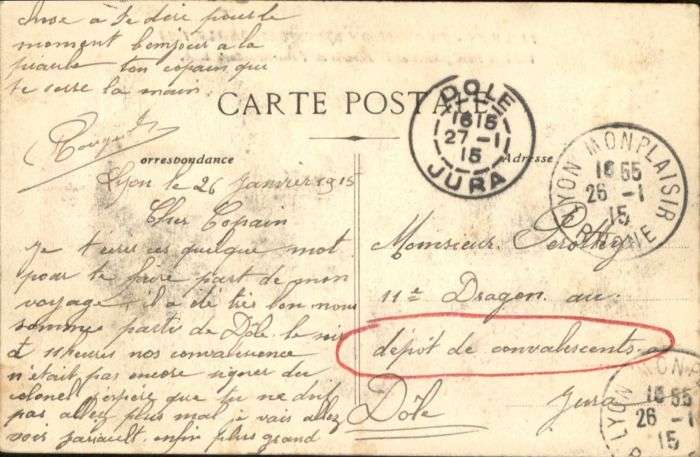 chose à te dire pour le
moment bonjour a la
ton copain qui
te serre la main
CARTE POSTALE
orrespondance
Adresse
DOLE
16 15
27 - 1
15
JURA
LYON MONPLAISIR
16 55
26 - 1
15
RHONE
Lyon le 26 Janvier 1915
Cher Copain
Je t'ecris ces quelque mot
pour te faire part de mon
voyage il a été très bon nous
somme partis de Dôle le soir
à 11 heures nos convalescence
n'était pas encore signer du
colonel j'espère que tu ne doit
pas aller plus mal je vais allez
voir enfin plus grand
Monsieur
11e Dragon au
dépôt de convalescents
Dôle Jura
LYON MONP
16 55
26 - 1
15